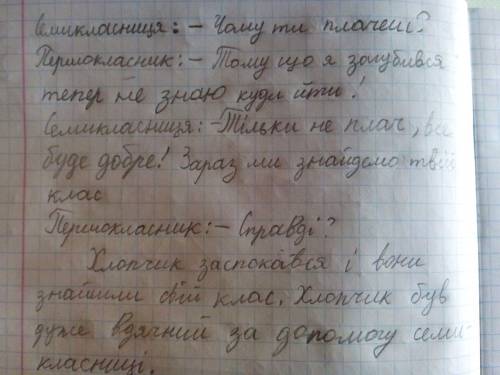 Семикласниця: - Чому ти плачеш?
Першокласник: - Тому що я загубився
тепер не знаю куди йти!
Семикласниця: - Тільки не плач, все
буде добре! Зараз ми знайдемо твій
клас
Першокласник: - Справді?
Хлопчик заспокався і вони
знайшли свій клас. Хлопчик був
дуже вдячний за допомогу семи-
класниці.